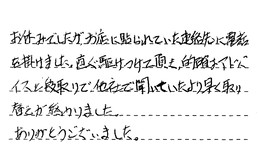 お休みでしたが、お店に貼られていた連絡先に電話
を掛けました。直ぐ駆けつけて頂き、的確なアドバ
イスと段取りで他店で聞いていたより早く取り
替えが終わりました。
ありがとうございました。